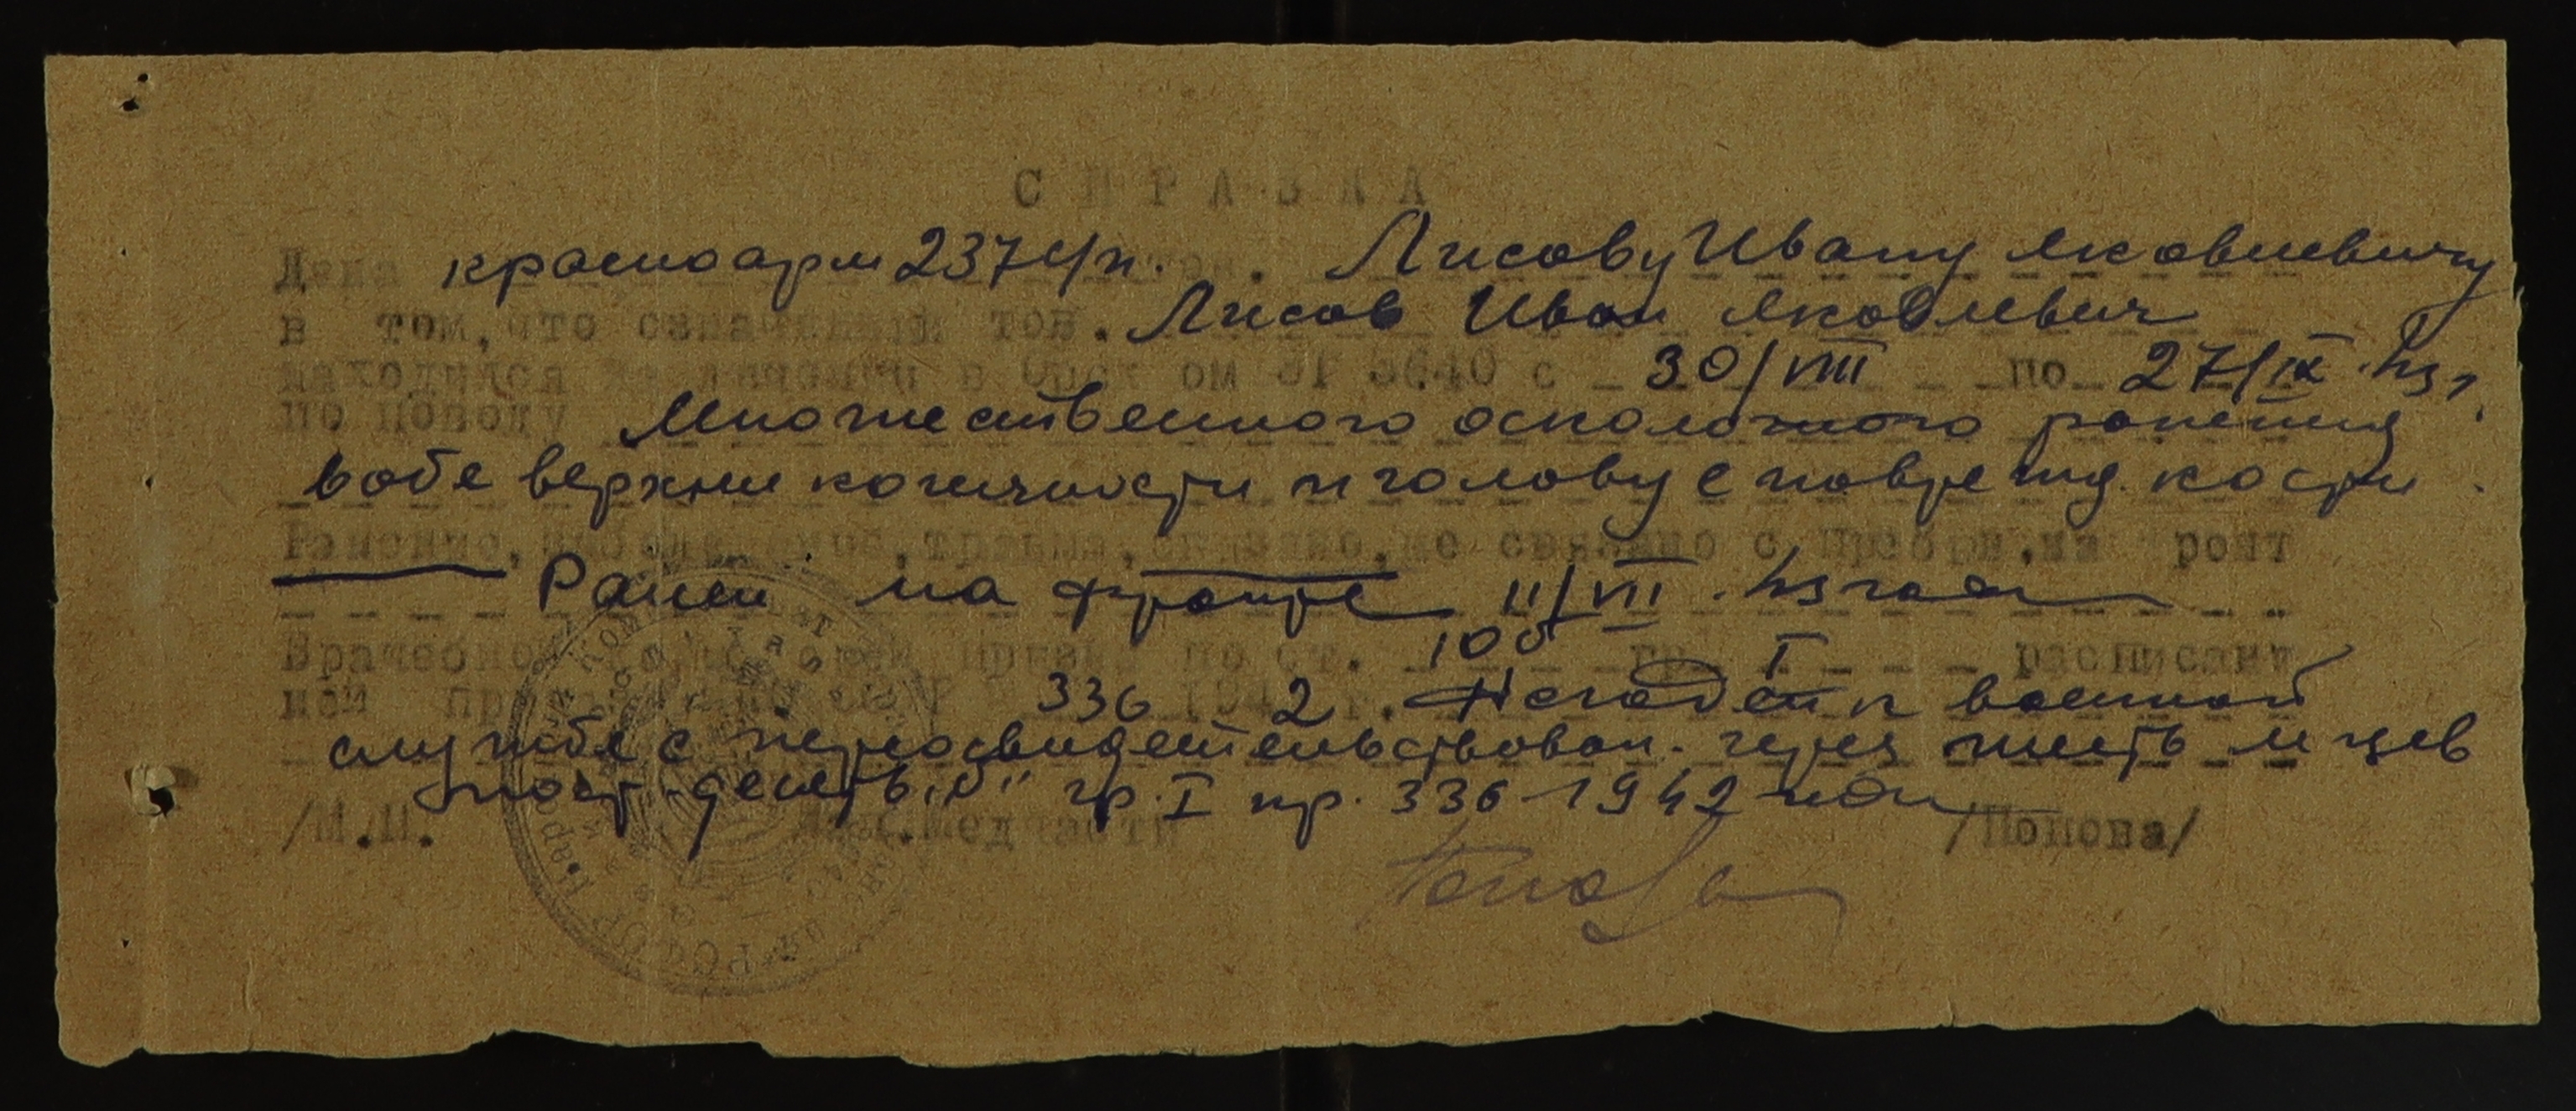 СПРАВКА
Дана красноарм 237 с/п. тов. Лисову Ивану Яковлевичу
в том, что означенный тов. Лисов Иван Яковлевич
находился на излечении в ом ЭГ 3640 с 30/VIII по 27/IX 43 г.
по поводу Множественного осколочного ранения
в обе верхни конечности и голову с поврежд. кости.
Ранение, заболевание, травма, связано, не связано с пребыв. на фронт
Ранен на фронте 11/VII. 43 года
Врачебной комиссией признан по ст. 10б гр I расписания
ней пр 336 1942 г. Негоден к военной
службе с переосвидетельствован. через шесть м-цев
пост. десять "б" гр. I пр. 336-1942 года
/М.П. Нач. Медчасти /Попова/
Попова